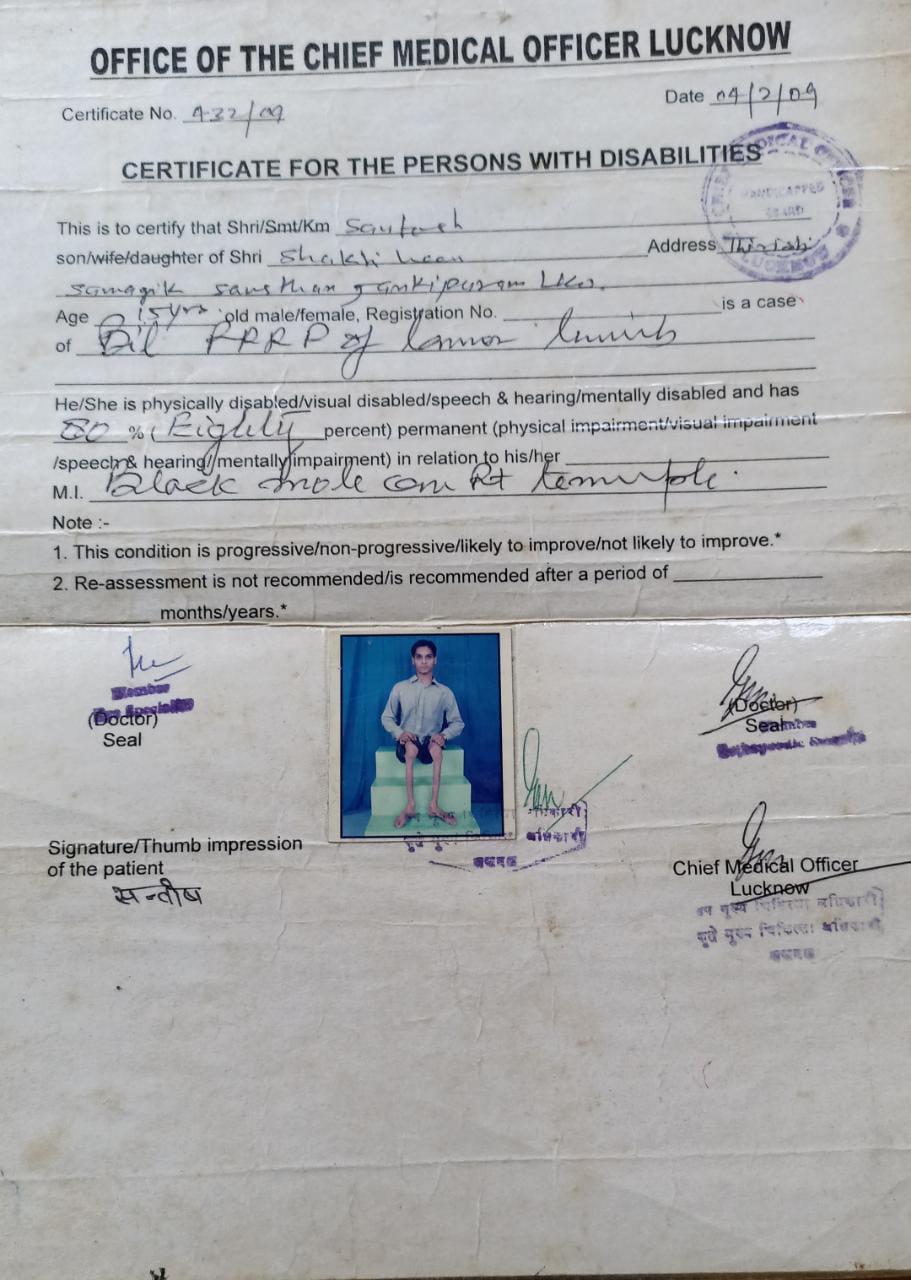 OFFICE OF THE CHIEF MEDICAL OFFICER LUCKNOW
Certificate No.
Date 04/2/09
CERTIFICATE FOR THE PERSONS WITH DISABILITIES
CHIEF MEDICAL OFFICER
HANDICAPPED
BOARD
LUCKNOW
This is to certify that Shri/Smt/Km Santosh
son/wife/daughter of Shri Address
samagik sansthan Jankipuram Lko.
Age 15 yrs old male/female, Registration No. is a case
of of lower limb
He/She is physically disabled/visual disabled/speech & hearing/mentally disabled and has
80 % (Eighty percent) permanent (physical impairment/visual impairment
/speech & hearing/mentally impairment) in relation to his/her
M.I. Black mole on Rt
Note :-
1. This condition is progressive/non-progressive/likely to improve/not likely to improve.*
2. Re-assessment is not recommended/is recommended after a period of
months/years.*
Member
(Doctor)
Seal
(Doctor)
Seal
Signature/Thumb impression
of the patient
सन्तोष
अधिकारी
लखनऊ
Chief Medical Officer
Lucknow
उप मुख्य चिकित्सा अधिकारी
कृते मुख्य चिकित्सा अधिकारी
लखनऊ